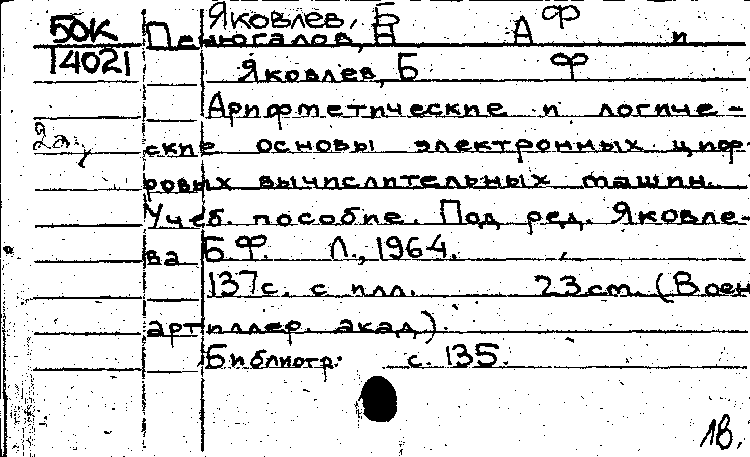 Яковлев, Б Ф
50К
14021
Пенюгалов, Н А и
Яковлев, Б Ф
Арифметические и логиче-
ские основы электронных циф-
ровых вычислительных машин.
Учеб. пособие. Под ред. Яковле-
ва Б.Ф. Л., 1964.
137с. с илл. 23см. (Воен
артиллер. акад).
Библиогр: с. 135.
18.